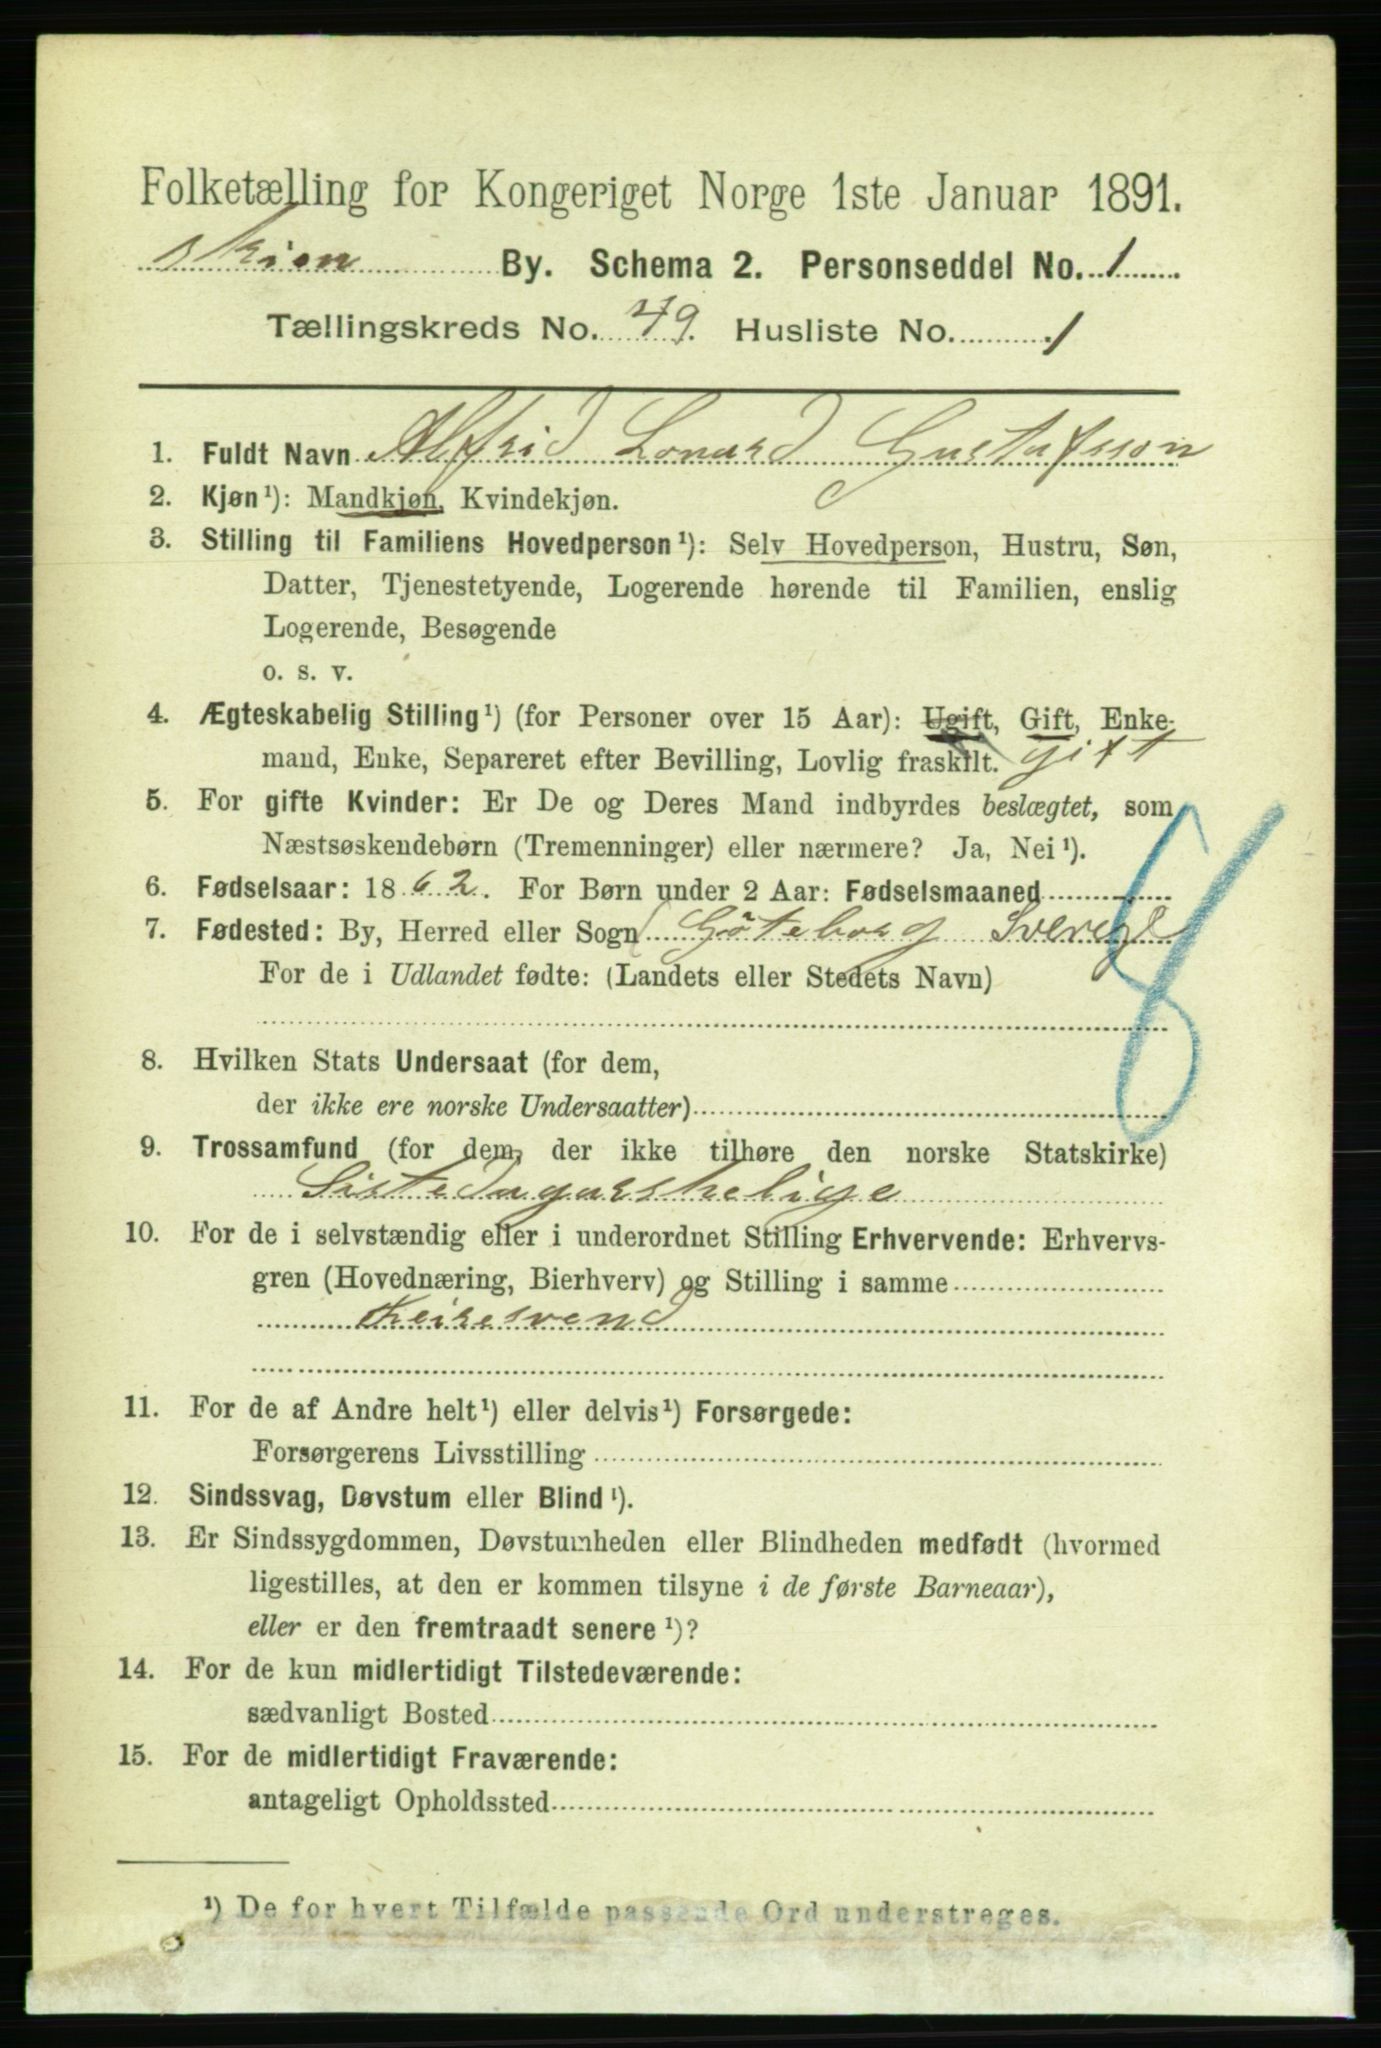 Folketælling for Kongeriget Norge 1ste Januar 1891.
Skien By. Schema 2. Personseddel No. 1
Tællingskreds No. 49. Husliste No. 1
1. Fuldt Navn Alfrid Lonard Gustafsson
2. Kjøn¹): Mandkjøn, Kvindekjøn.
3. Stilling til Familiens Hovedperson¹): Selv Hovedperson, Hustru, Søn,
Datter, Tjenestetyende, Logerende hørende til Familien, enslig
Logerende, Besøgende
o. s. v.
4. Ægteskabelig Stilling¹) (for Personer over 15 Aar): Ugift, Gift, Enke-
mand, Enke, Separeret efter Bevilling, Lovlig fraskilt. gift
5. For gifte Kvinder: Er De og Deres Mand indbyrdes beslægtet, som
Næstsøskendebørn (Tremenninger) eller nærmere? Ja, Nei¹).
6. Fødselsaar: 1862. For Børn under 2 Aar: Fødselsmaaned
7. Fødested: By, Herred eller Sogn Göteborg Sverege
For de i Udlandet fødte: (Landets eller Stedets Navn)
8. Hvilken Stats Undersaat (for dem,
der ikke ere norske Undersaatter)
9. Trossamfund (for dem, der ikke tilhøre den norske Statskirke)
Sistedagarshelige
10. For de i selvstændig eller i underordnet Stilling Erhvervende: Erhvervs-
gren (Hovednæring, Bierhverv) og Stilling i samme
11. For de af Andre helt¹) eller delvis¹) Forsørgede:
Forsørgerens Livsstilling
12. Sindssvag, Døvstum eller Blind¹).
13. Er Sindssygdommen, Døvstumheden eller Blindheden medfødt (hvormed
ligestilles, at den er kommen tilsyne i de første Barneaar),
eller er den fremtraadt senere¹)?
14. For de kun midlertidigt Tilstedeværende:
sædvanligt Bosted
15. For de midlertidigt Fraværende:
antageligt Opholdssted
¹) De for hvert Tilfælde passende Ord understreges.